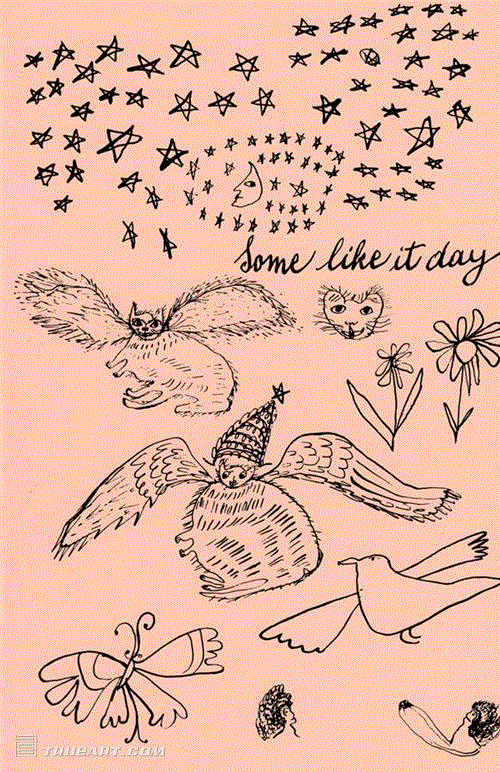 Some like it day
TOOPART.COM